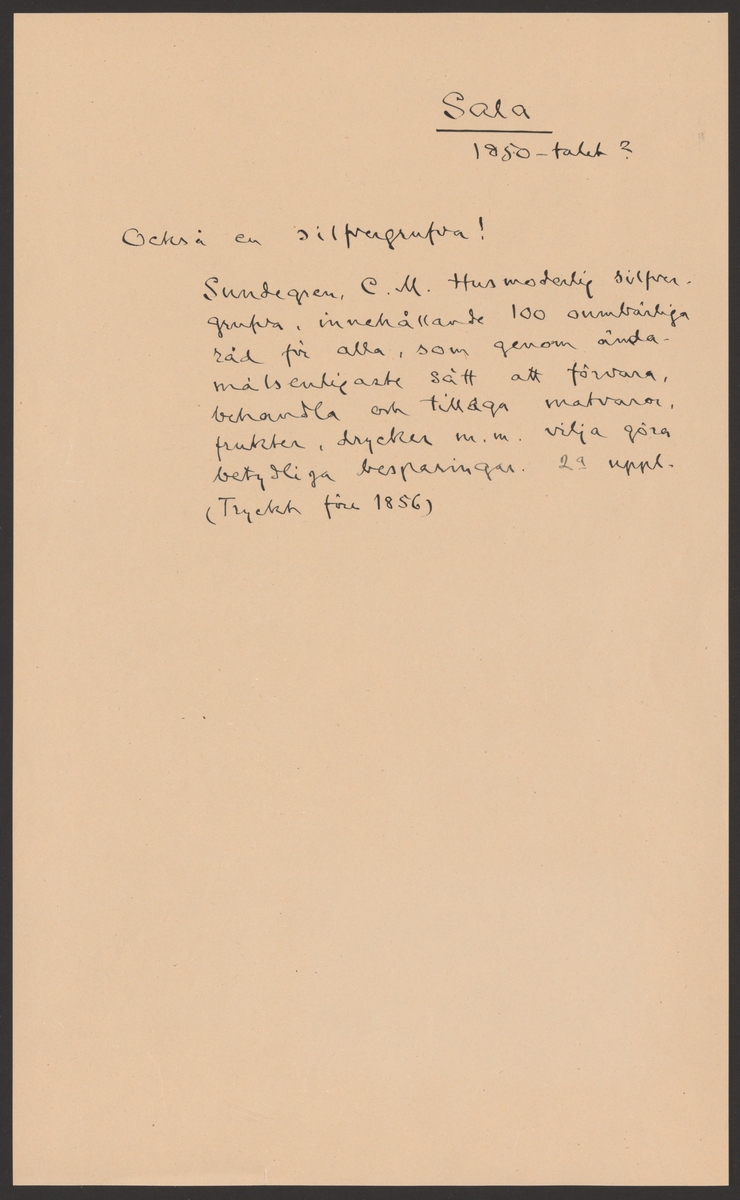 Sala
1850-talet?
Också en silfvergrufva!
Sundegren, C. M. Husmoderlig silfver-
grufva, innehållande 100 oumbärliga
råd för alla, som genom ända-
målsenligaste sätt att förvara,
behandla och tillaga matvaror,
frukter, drycker m.m. vilja göra
betydliga besparingar. 2a uppl.
(Tryckt före 1856)